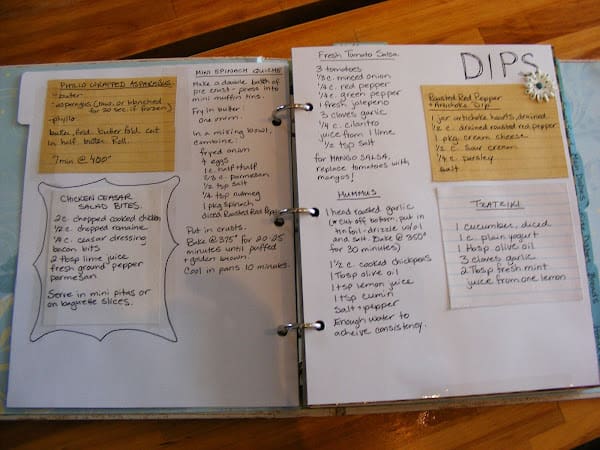 PHYLLO WRAPPED ASPARAGUS
*butter
*asparagus (raw, or blanched
for 20 sec. if frozen)
*phyllo
butter, fold, butter fold, cut
in half, butter. Roll.
7 min. @ 400°
CHICKEN CEASAR
SALAD BITES.
2 c chopped cooked chicken
1/2 c. chopped romaine
1/4 c. ceasar dressing
bacon bits
2 tbsp lime juice
fresh ground pepper
parmesan
Serve in mini pitas or
on baguette slices.
MINI SPINACH QUICHE
Make a double batch of
pie crust - press into
mini muffin tins.
Fry in butter:
one onion.
In a mixing bowl,
combine:
fryed onion
4 eggs
1 c half + half
2/3 c. parmesan
1/2 tsp salt
1/4 tsp nutmeg
1 pkg spinach
diced Roasted Red Pepper
Put in crusts.
Bake @ 375° for 20-25
minutes until puffed
+ golden brown.
Cool in pans 10 minutes.
DIPS
Fresh Tomato Salsa
3 tomatoes
1/3 c. minced onion
1/4 c. red pepper
1/4 c. green pepper
1 fresh jalepeno
3 cloves garlic
1/4 c. cilantro
juice from 1 lime
1/2 tsp salt
for MANGO SALSA,
replace tomatoes with
mangos!
HUMMUS
1 head roasted garlic
(* cut off bottom, put in
tin foil - drizzle w/ oil
and salt. Bake @ 350°
for 30 minutes)
1 1/2 c. cooked chickpeas
1 Tbsp olive oil
1 tsp lemon juice
1 tsp cumin
Salt + pepper
Enough water to
acheive consistency.
Roasted Red Pepper
+ Artichoke Dip
1 jar artichoke hearts, drained
1/2 c. drained roasted red pepper
1 pkg cream cheese
1/2 c. sour cream
1/4 c. parsley
salt
TZATZIKI
1 cucumber, diced
1 c. plain yogurt
1 tbsp olive oil
3 cloves garlic
2 Tbsp fresh mint
juice from one lemon